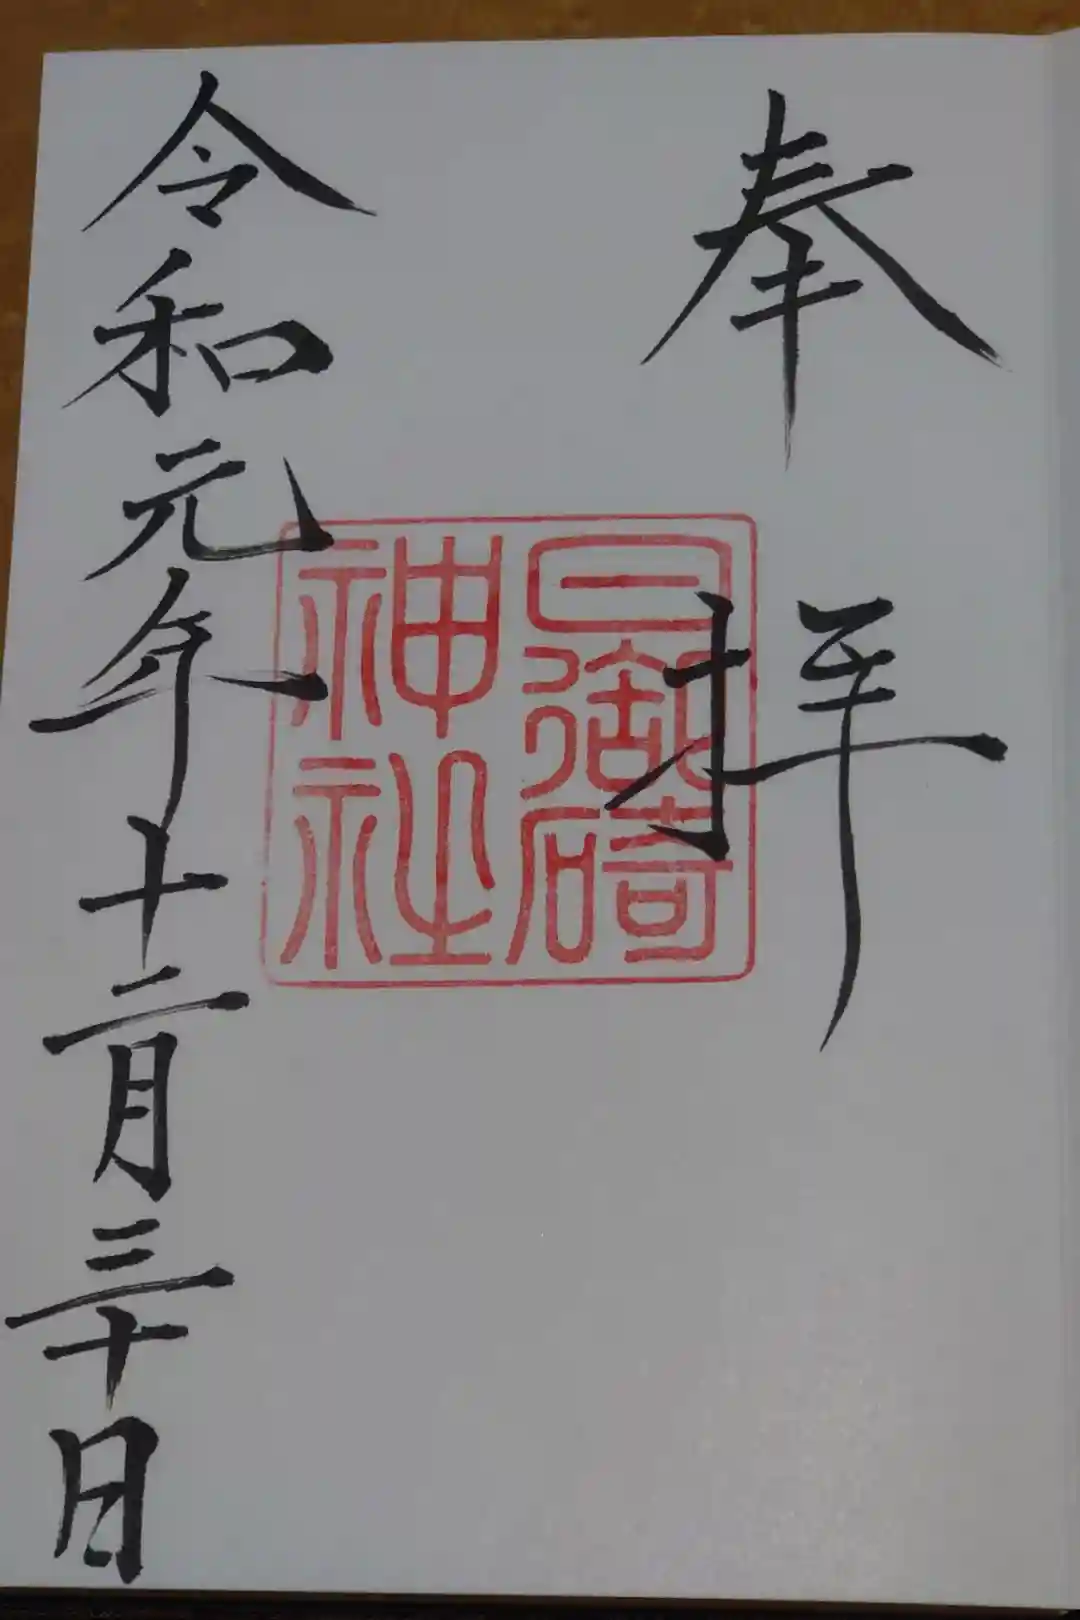 奉拝
日御碕
神社
令和元年十二月三十日